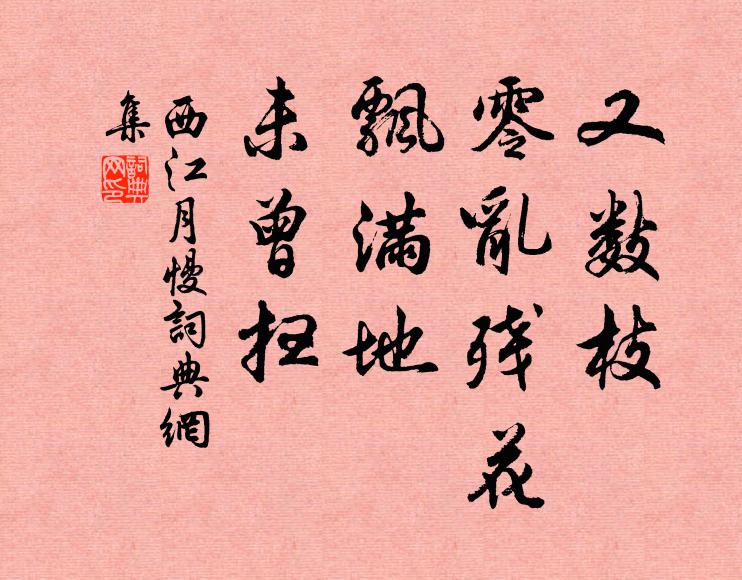 又数枝
零亂残花
飄滿地
未曾扫
西江月慢詞典網
集
詞典网印